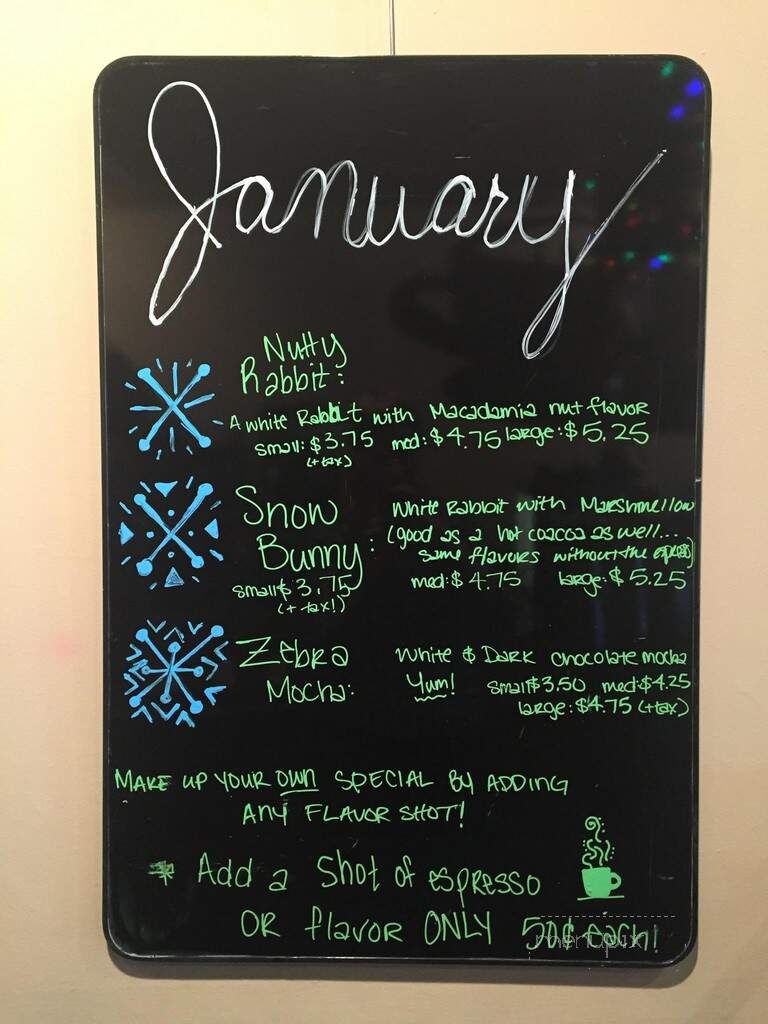 January
Nutty
Rabbit:
A white Rabbit with Macadamia nut flavor
small: $3.75 med: $4.75 large: $5.25
(+tax)
Snow
Bunny:
small $3.75
(+tax!)
White Rabbit with Marshmellow
(good as a hot coacoa as well...
same flavors without the espresso)
med: $4.75 large: $5.25
Zebra
Mocha:
White & Dark chocolate mocha
Yum! small $3.50 med: $4.25
large: $4.75 (+tax)
MAKE UP YOUR OWN SPECIAL BY ADDING
ANY FLAVOR SHOT!
* Add a Shot of espresso
OR flavor ONLY 50¢ each!
menupix